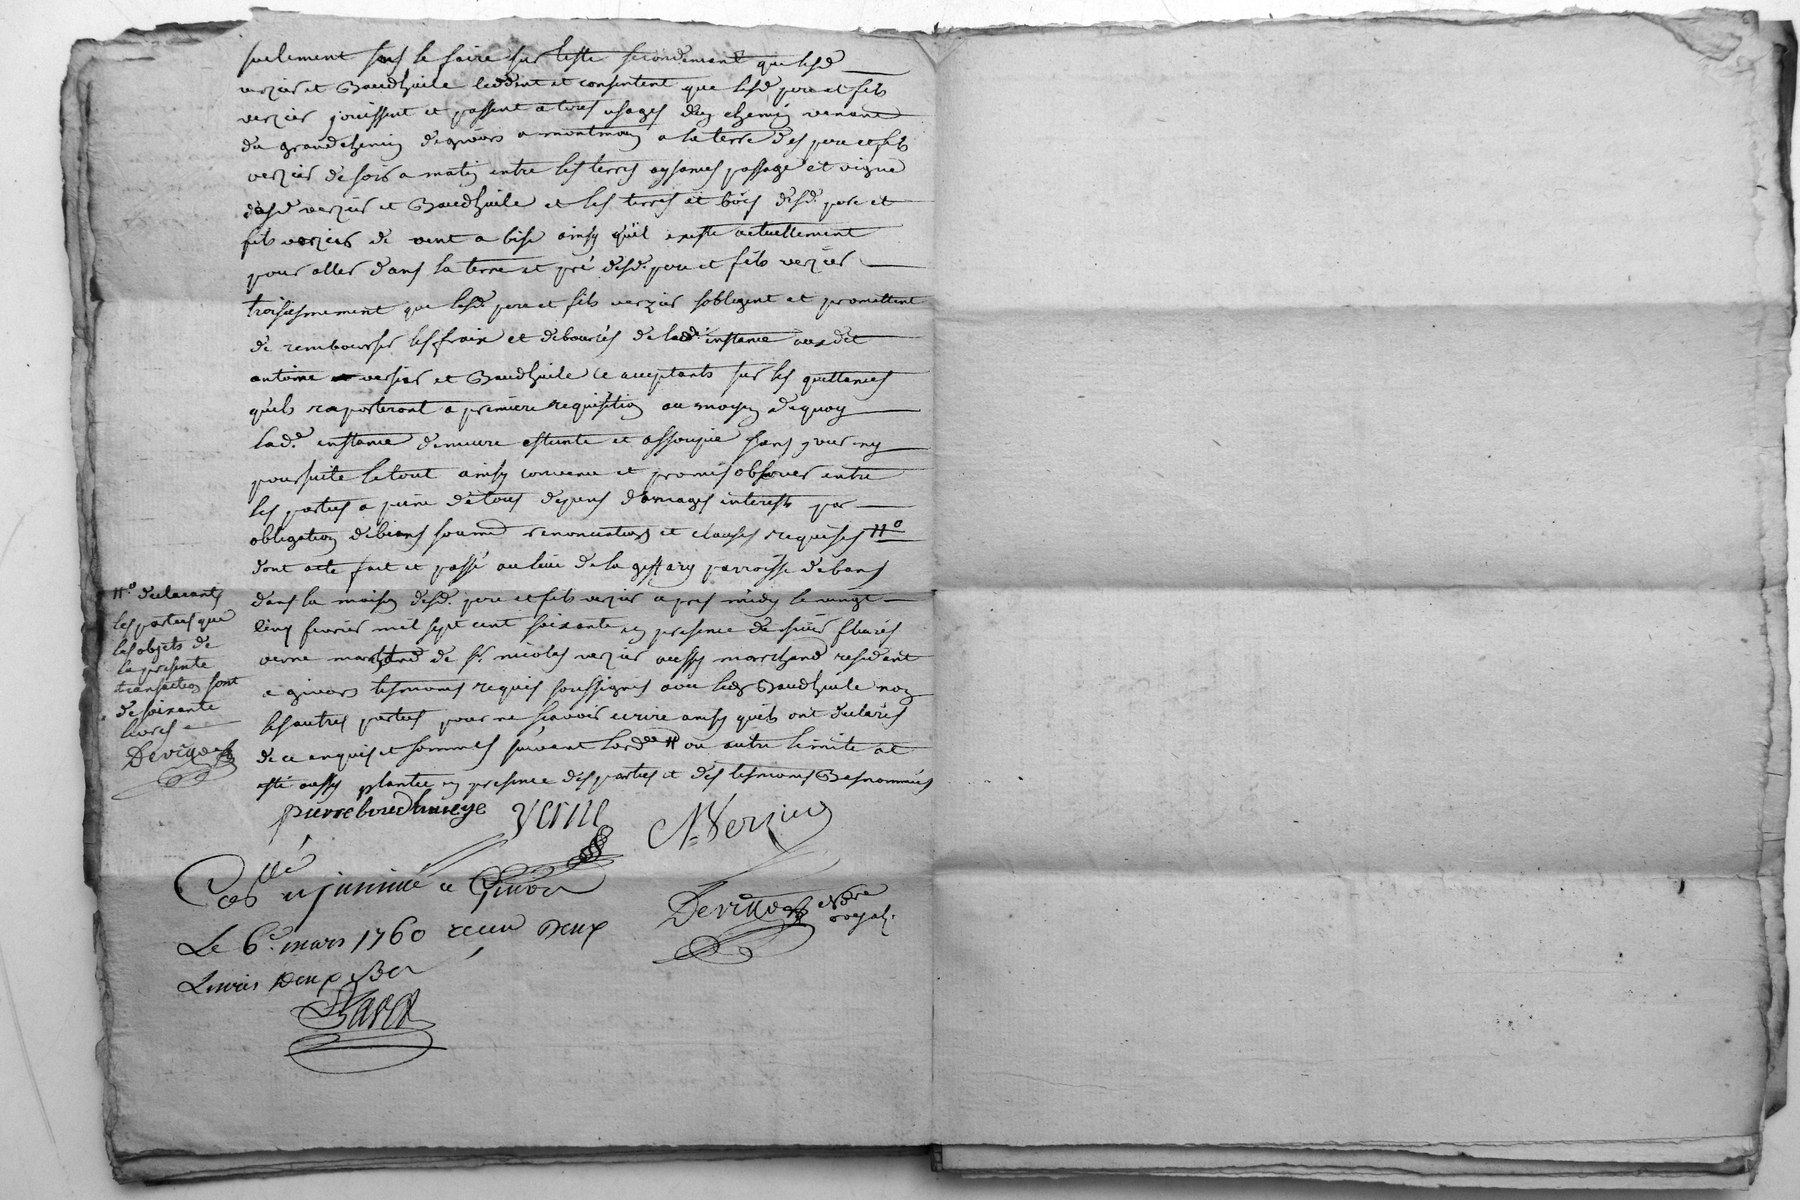 seulement sans le faire sur l'este secondement que lesd
verzier et Baudhuile ceddent et consentent que lesd pere et fils
verzier jouissent et passent a tous usages du chemin venant
du grand chemin de givors a montmain a la terre desd pere et fils
verzier de soir a matin entre les terres passage et vigne
desd verzier et Baudhuile et les terres et bois desd. pere et
fils verzier de vent a bise ainsy qu'il existe actuellement
pour aller dans la terre et pré desd. pere et fils verzier
troisiesmement que lesd. pere et fils verzier sobligent et promettent
de rembourser les fraix et debourcés de lade instance auxdit
antoine verzier et Baudhuile ce acceptants sur les quittances
qu'ils raporteront a premiere requisition au moyen de quoy
lad.e instance demeure esteinte et assoupie sans y
poursuite le tout ainsy convenu et promis observer entre
les parties a peine de tous depens domages interests par
obligation de biens soumon renonciations et clauses requises #o
dont acte fait et passé au lieu de la parroisse de bans
dans la maison desd. pere et fils verzier apres midy le vingt
cinq fevrier mil sept cent soixante en presence de sieur fleury
verne marchand de sr. nicolas verzier aussy marchand residant
a givors tesmoins requis soussignés avec led Baudhuile non
les autres parties pour ne scavoir ecrire ainsy qu'ils ont declarés
de ce enquis et sommés suivant lordce # ou autre limite at
esté aussy plantée en presence des parties et des tesmoins
#o declarants
les parties que
les objets de
la presente
transaction sont
de soixante
livres
pierre boudhuieye verne N. Verzier
Cellé et a Givors
Le 6e. mars 1760 recu Deux
Livres Deux
royal.